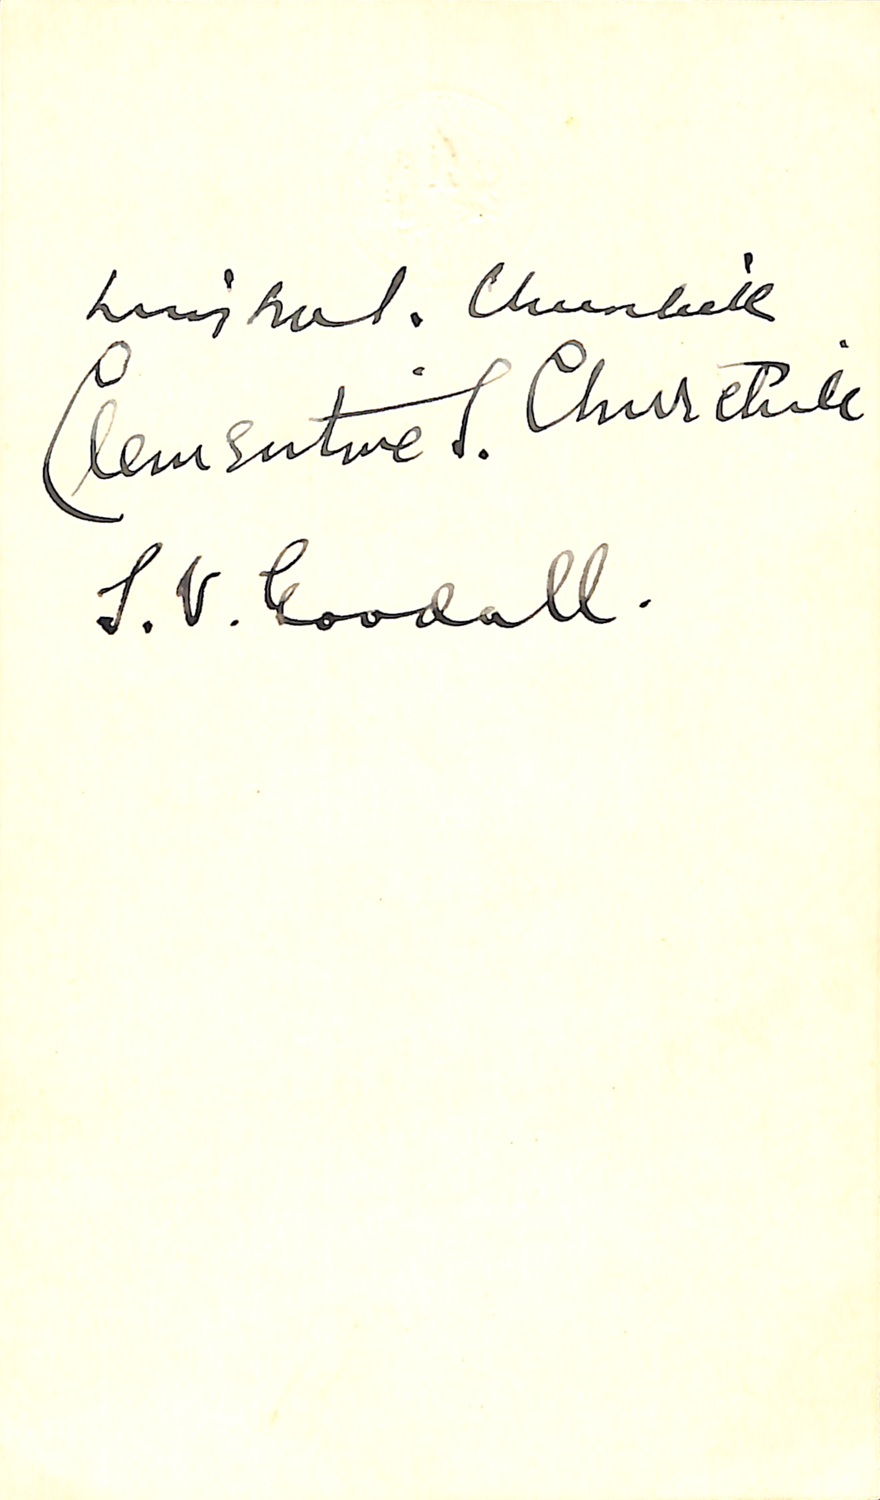 Winston S. Churchill
Clementine S. Churchill
S. V. Goodall.